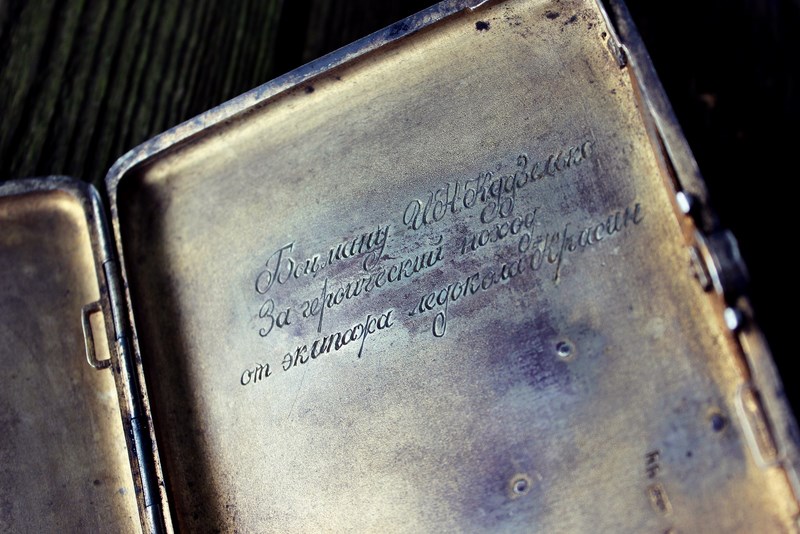 Боцману И.Н. Кудзелько
За героический поход
от экипажа ледокола Красин